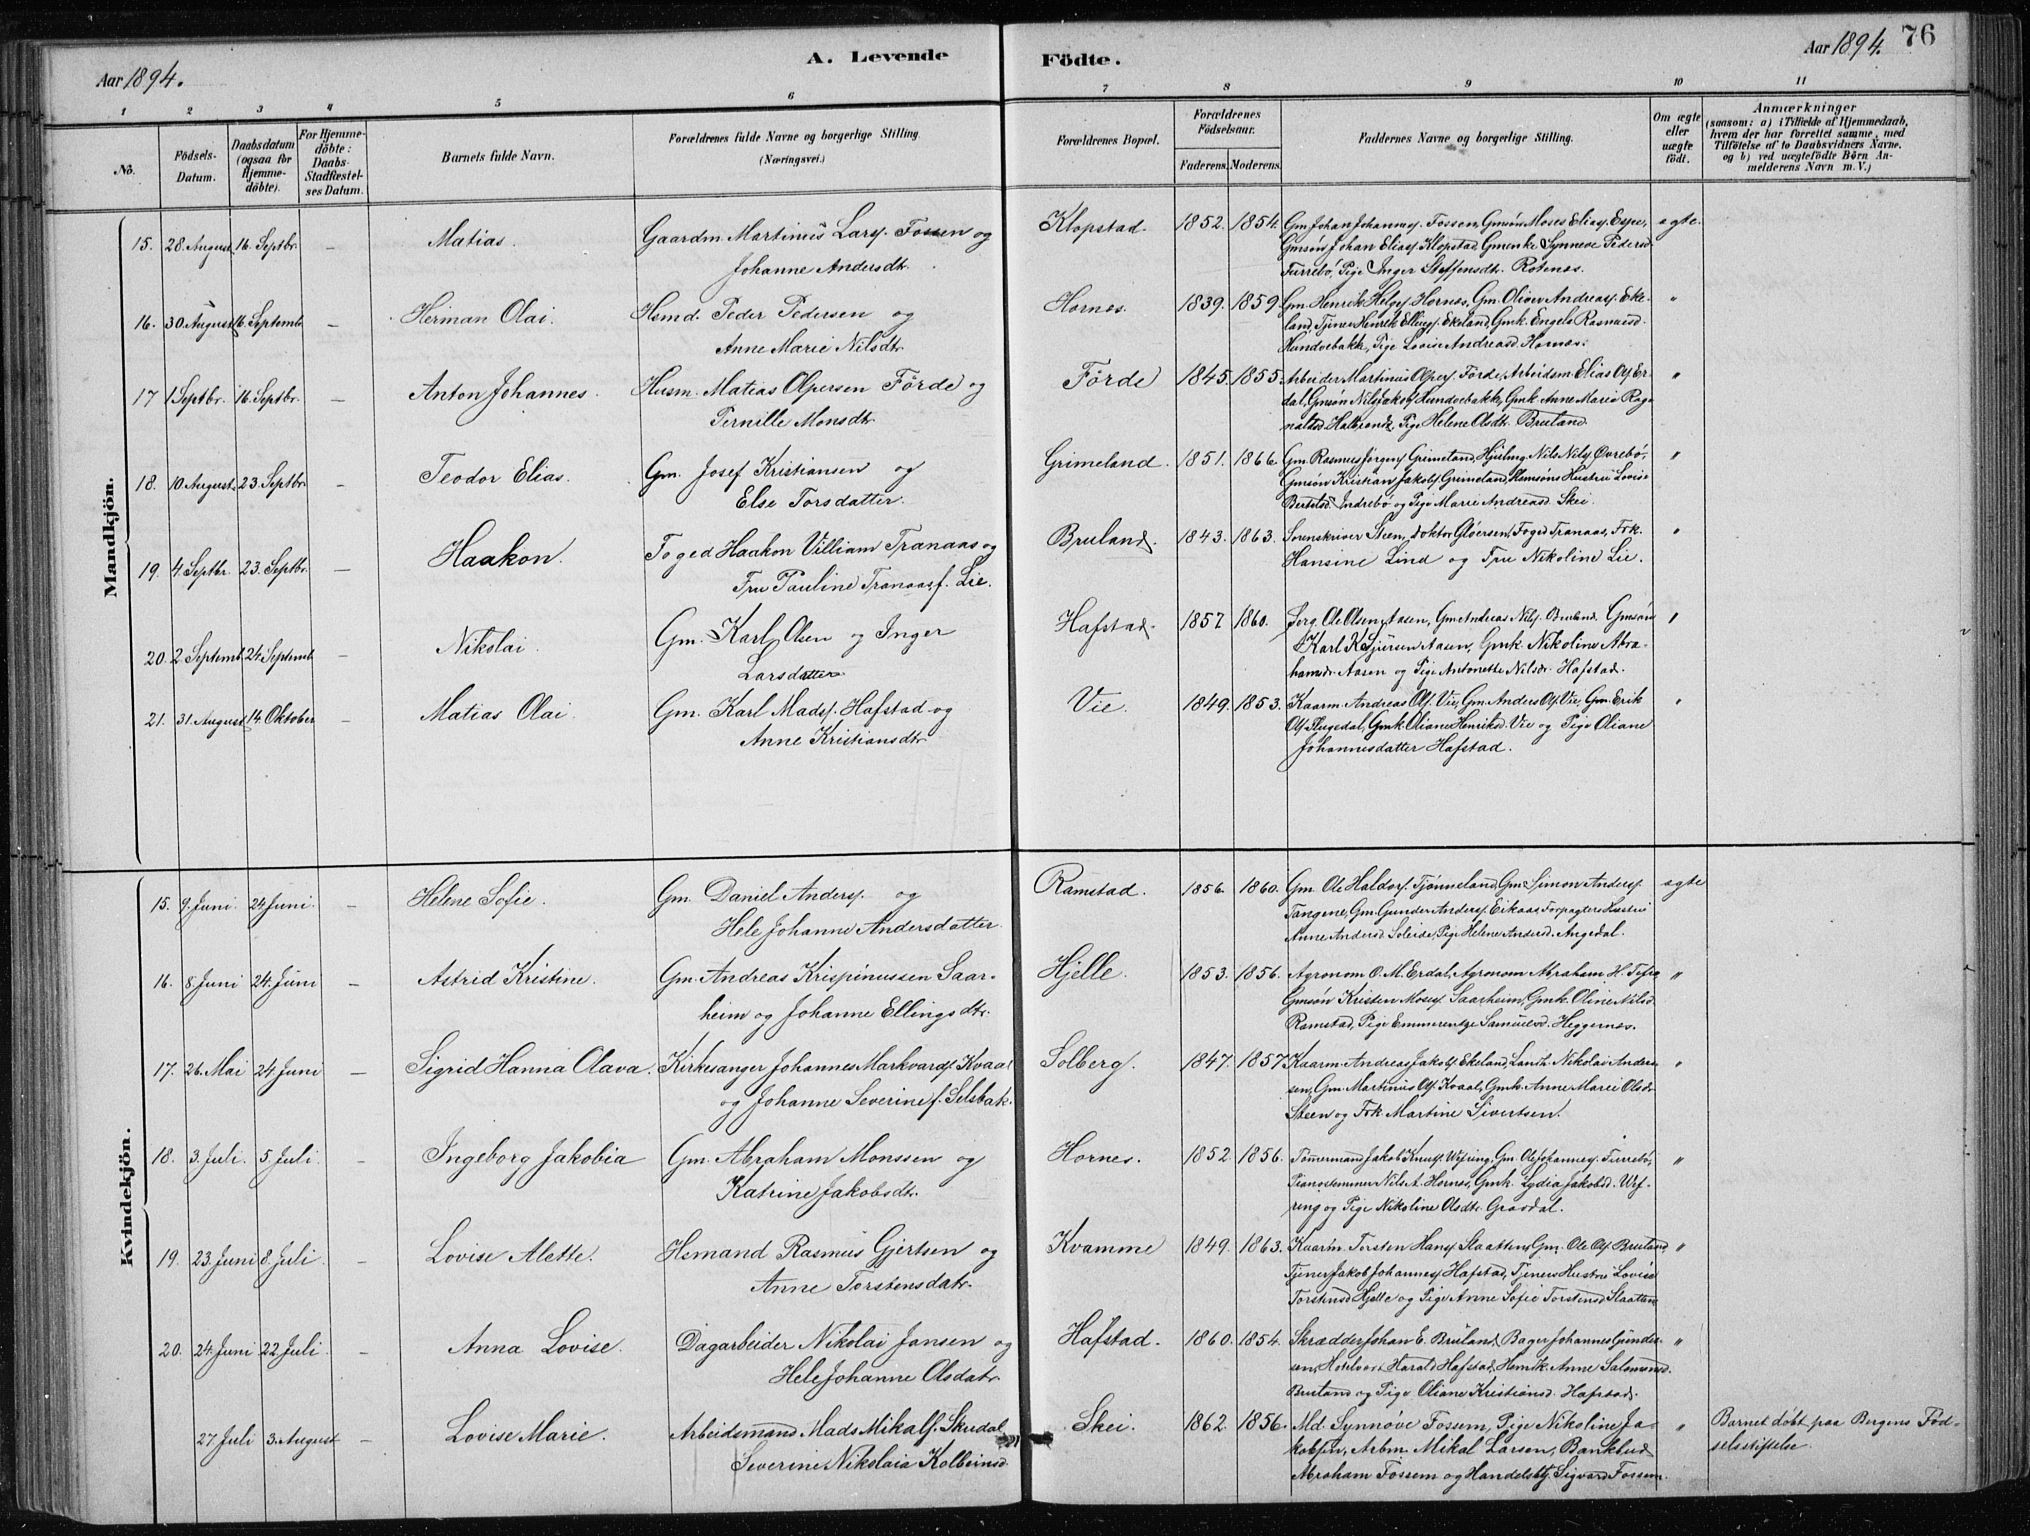 Aar 1894.
A. Levende
Födte.
Aar 1894.
76
1 2 3 4 5 6 7 8 9 10 11
No.
Födsels-Datum.
Daabsdatum (ogsaa for Hjemmedöbte).
For Hjemmedöbte: Daabs-Stadfæstelses Datum.
Barnets fulde Navn.
Forældrenes fulde Navne og borgerlige Stilling. (Næringsvei.)
Forældrenes Bopæl.
Forældrenes Födselsaar.
Faderens. Moderens.
Faddernes Navne og borgerlige Stilling.
Om ægte eller uægte födt.
Anmærkninger (saasom: a) i Tilfælde af Hjemmedaab, hvem der har forrettet samme, med Tilföielse af to Daabsvidners Navne, og b) ved uægtefödte Börn Anmelderens Navn m. V.)
Mandkjön.
15. 28. August 16. Septbr. – Matias. Gaardm. Martinus Larss. Fossen og
Johanne Andersdtr.
Klopstad. 1852. 1854. Gm. Johan Johanness. Fossen, Gmsön Moses Eliass. Espe, ægte.
Gmsön Johan Eliass. Klopstad, Gmenke Synneve Pedersd.
Furrebö, Pige Inger Steffensdtr. Rotenæs.
16. 30 August 16. Septemb. – Herman Olai. Hsmd. Peder Pedersen og
Anne Marie Nilsdtr.
Hornes. 1839. 1859. Gm. Henrik Helges. Hornes, Gm. Oliver Andreass. Eke- "
land, Tjener Henrik Ellings. Ekeland, Gmk. Engels Rasmusd.
Hundvebakk, Pige Lovise Andreasd. Hornes.
17 1 Septbr. 16. Septbr. – Anton Johannes. Husm. Matias Olpersen Förde og
Pernille Monsdtr.
Förde 1845. 1855. Arbeider Martinus Olpers. Förde, Arbeidsm. Elias Ols. Er- "
dal, Gmsön Nils Jakobs. Hundvebakk, Gmk. Anne Marie Rag-
naldsd. Halbrend, Pige Helene Olsdtr. Bruland.
18. 10. August. 23. Septbr. – Teodor Elias. Gm. Josef Kristiansen og
Else Torsdatter.
Grimeland. 1851. 1866. Gm. Rasmus Jörgens. Grimeland, Nils Nils. Övrebö, "
Gmsön Kristian Jakobs. Grimeland, Hustru Lovise
Bertelsd. Indrebö og Pige Marie Andreasd. Skei.
19. 4. Septbr. 23. Septbr. – Haakon. Foged Haakon Villiam Tranaas og
Fru Pauline Tranaas f. Lie.
Bruland. 1843. 1863. Sorenskriver Steen, Doktor Gloersen, Foged Tranaas, Frk. "
Hansine Lind og Fru Nikoline Lie.
20. 2. Septemb. 24 Septemb. – Nikolai. Gm. Karl Olsen og Inger
Larsdatter
Hafstad. 1857 1860. Ole Olsen Aasen, Gm. Andreas Nils. Bruland, Gmsön "
Karl K. Sjursen Aasen, Gmk. Nikoline Abra-
hamsdr. Aasen og Pige Antonette Nilsdr. Hafstad.
21. 31. August 14. Oktober – Matias Olai. Gm. Karl Mads. Hafstad og
Anne Kristiansdtr
Vie. 1849. 1853. Kaarm. Andreas Ols. Vie, Gm. Anders Ols. Vie, Gm. Erik "
Ols. Flugedal, Gmk. Oliane Henriksd. Vie og Pige Oliane
Johannesdatter Hafstad.
Kvindekjön.
15. 9. Juni. 24 Juni. – Helene Sofie. Gm. Daniel Anders. og
Hele Johanne Andersdatter.
Ramstad. 1856. 1860. Gm. Ole Haldors. Tjönneland, Gm. Simon Anders. ægte
Tangene, Gm. Gunder Anders. Eikaas, Forpagters Hustru
Anne Andersd. Soleide, Pige Helene Andersd. Angedal.
16. 8. Juni 24. Juni – Astrid Kristine. Gm. Andreas Krispinussen Saar-
heim og Johanne Ellingsdtr.
Hjelle. 1853. 1856. Agronom O. M. Erdal, Agronom Abraham H. "
Gmsön Kristen Moses. Saarheim, Gmk. Oline Nilsd.
Ramstad, Pige Emmerentze Samuelsd. Heggernes.
17. 26. Mai 24 Juni – Sigrid Hanna Olava. Kirkesanger Johannes Markvards. Kvaal
og Johanne Severine f. Selsbak.
Solberg. 1847. 1857 Kaarm. Andreas Jakobs. Ekeland, Landh. Nikolai Ander- "
sen, Gm. Martinus Ols. Kvaal, Gmk. Anne Marie Olsdr.
Steen og Frk Martine Sivertsen.
18. 3. Juli. 5. Juli. – Ingeborg Jakobia Gm. Abraham Monssen og
Katrine Jakobsdtr.
Hornes. 1852. 1856. Tömmermand Jakob Knuts. Wefring, Gm. Ole Johannes. Furrebö, "
Pianostemmer Nils A. Hornes, Gmk. Lydia Jakobsd. Wef-
ring og Pige Nikoline Olsdtr. Gravdal.
19. 23. Juni 8. Juli. – Lovise Alette. Hsmand Rasmus Gjertsen og
Anne Torstensdatr.
Kvamme 1849. 1863. Kaarm. Torsten Hans. Slaatten, Gm. Ole Ols. Bruland, "
Tjener Jakob Johannes. Hafstad, Tjeners Hustru Lovise
Torstensd. Hjelle og Pige Anne Sofie Torstensd. Slaatten.
20. 24. Juni 22 Juli. – Anna Lovise. Dagarbeider Nikolai Jansen og
Hele Johanne Olsdatr.
Hafstad. 1860. 1854. Skrædder Johan E. Bruland, Bager Johannes Gunder- "
sen, Harald Hafstad, Hsmk. Anne Salomonsd.
Bruland og Pige Oliane Kristiansd. Hafstad.
27. Juli 3. August – Lovise Marie. Arbeidsmand Mads Mikals. Skudal
Severine Nikolaia Kolbeinsd.
Skei. 1862. 1856. Md. Synnöve Fossum, Pige Nikoline Ja- " Barnet döbt paa Bergens Föd-
kobsen, Arbm. Mikal Larsen, Bankbud selsstiftelse.
Abraham Fossem og Handelsbtj. Sigvard Fossem.